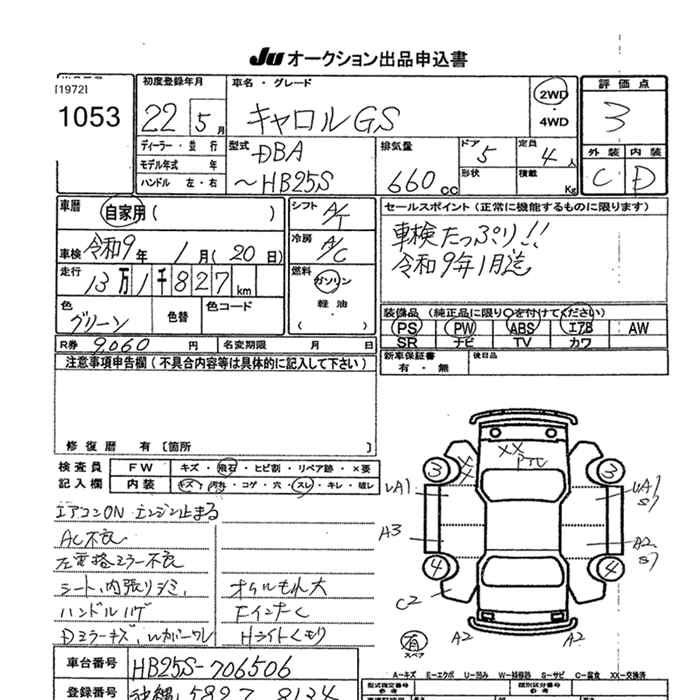 Ju オークション出品申込書
[1972]
1053
初度登録年月
22 5月
車名・グレード
キャロル GS
2WD・4WD
評価点
3
ディーラー・並行
モデル年式 年
ハンドル 左・右
型式
DBA
～HB25S
排気量
660cc
ドア 5
定員 4人
形状
積載 Kg
外装 内装
C D
車歴 自家用 ( )
シフト A/T
セールスポイント(正常に機能するものに限ります)
車検たっぷり!!
令和9年1月迄
車検 令和9年 1月(20日)
冷房 A/C
走行
13万1千827km
燃料
ガソリン
軽油
( )
色
グリーン
色替
色コード
装備品(純正品に限り○を付けてください)
PS PW ABS エアB AW
SR ナビ TV カワ
R券 9,060円
名変期限 月 日
新車保証書
有・無
後日品
注意事項申告欄(不具合内容等は具体的に記入して下さい)
修復歴 有[箇所 ]
検査員
記入欄
FW キズ・飛石・ヒビ割・リペア跡・×要
内装 キズ・汚れ・コゲ・穴・スレ・キレ・破レ
エアコンON エンジン止まる
AC不良
左電格ミラー不良
シート、内張りシミ
オイルもれ大
ハンドルハゲ
FインナーC
Dミラーキズ、
Hライトくもり
XX
3
3
UA1
UA1
S7
A3
A2
S7
4
4
C2
A2
A2
有
スペア
A-キズ E-エクボ U-凹み W-補修跡 S-サビ C-腐食 XX-交換済
車台番号
HB25S-706506
型式指定番号
参考
類別区分番号
参考
登録番号
沖縄 5827 8134